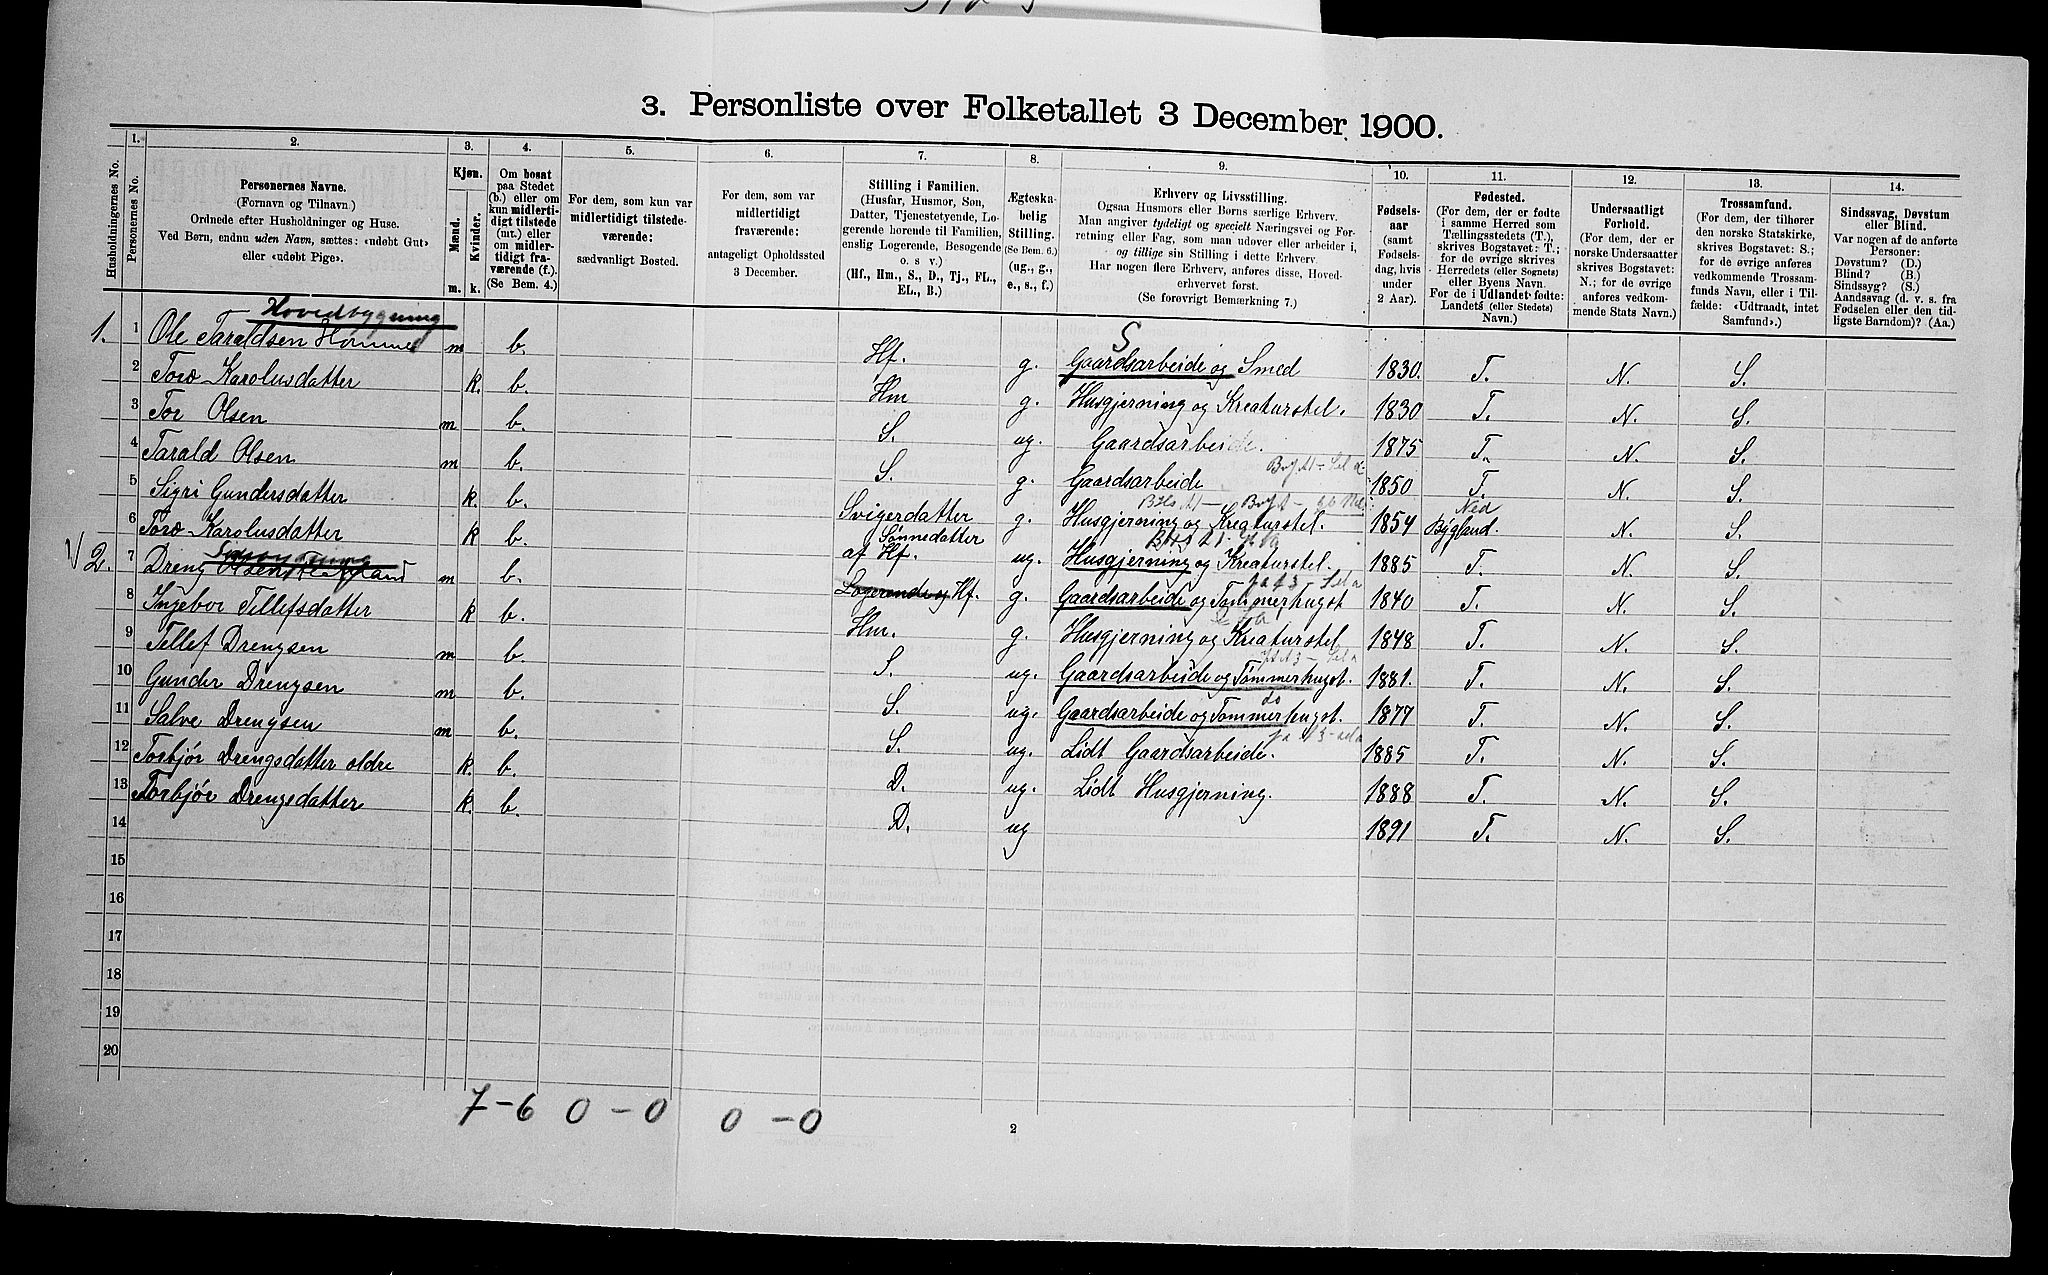 3. Personliste over Folketallet 3 December 1900.
Husholdningernes No.
1. Personernes No.
2. Personernes Navne.
(Fornavn og Tilnavn.)
Ordnede efter Husholdninger og Huse.
Ved Børn, endnu uden Navn, sættes: «udøbt Gut»
eller «udøbt Pige».
3. Kjøn.
Mænd. Kvinder.
m. k.
4. Om bosat
paa Stedet
(b.) eller om
kun midlerti-
digt tilstede
(mt.) eller
om midler-
tidigt fra-
værende (f.).
(Se Bem. 4.)
5. For dem, som kun var
midlertidigt tilstede-
værende:
sædvanligt Bosted.
6. For dem, som var
midlertidigt
fraværende:
antageligt Opholdssted
3 December.
7. Stilling i Familien.
(Husfar, Husmor, Søn,
Datter, Tjenestetyende, Lo-
gerende hørende til Familien,
enslig Logerende, Besøgende
o. s v.)
(Hf., Hm., S., D., Tj., FL.,
EL., B.)
8. Ægteska-
belig
Stilling.
(Se Bem. 6.)
(ug., g.,
e., s., f.)
9. Erhverv og Livsstilling.
Ogsaa Husmors eller Børns særlige Erhverv.
Man angiver tydeligt og specielt Næringsvei og For-
retning eller Fag, som man udøver eller arbeider i,
og tillige sin Stilling i dette Erhverv.
Har nogen flere Erhverv, anføres disse, Hoved-
erhvervet først.
(Se forøvrigt Bemærkning 7.)
10. Fødsels-
aar
(samt
Fødsels-
dag, hvis
under
2 Aar).
11. Fødested.
(For dem, der er fødte
i samme Herred som
Tællingsstedets (T.),
skrives Bogstavet: T.;
for de øvrige skrives
Herredets (eller Sognets)
eller Byens Navn.
For de i Udlandet fødte:
Landets (eller Stedets)
Navn.)
12. Undersaatligt
Forhold.
(For dem, der er
norske Undersaatter
skrives Bogstavet:
N.; for de øvrige
anføres vedkom-
mende Stats Navn.)
13. Trossamfund.
(For dem, der tilhører
den norske Statskirke,
skrives Bogstavet: S.;
for de øvrige anføres
vedkommende Trossam-
funds Navn, eller i Til-
fælde: «Udtraadt, intet
Samfund».)
14. Sindssvag, Døvstum
eller Blind.
Var nogen af de anførte
Personer:
Døvstum? (D.)
Blind? (B.)
Sindssyg? (S.)
Aandssvag (d. v. s. fra
Fødselen eller den tid-
ligste Barndom)? (Aa.)
Hovedbygning
S
1. 1 Ole Taraldsen Homme m b. Hf. g. Gaardsarbeide og Smed 1830. T. N. S.
2 Toro Karolusdatter k. b. Hm g. Husgjerning og Kreaturstel. 1830 T. N. S.
3 Tor Olsen m b. S. ug. Gaardsarbeide. 1875 T. N. S.
4 Tarald Olsen m b. S. g. Gaardsarbeide 1850 T. N. S.
5 Sigri Gundersdatter k. b. Svigerdatter g. Husgjerning og Kreaturstel. 1854 Bygland. N. S.
6 Toro Karolusdatter k b. Sønnedatter af Hf. ug. Husgjerning og Kreaturstel. 1885 T. N. S.
2. 7 Dreng Olsen m b. Logerende og Hf. g. Gaardsarbeide og Tømmerhugst 1840 T. N. S.
8 Ingebor Tellefsdatter k b. Hm. g. Husgjerning og Kreaturstel 1848 T. N. S.
9 Tellef Drengsen m b. S. ug. Gaardsarbeide og Tømmerhugst. 1881. T. N. S.
10 Gunder Drengsen m b. S. ug. Gaardsarbeide og Tømmerhugst. 1877 T. N. S.
11 Salve Drengsen m b. S. ug. Lidt Gaardsarbeide. 1885 T. N. S.
12 Torbjør Drengsdatter oldre k. b. D. ug. Lidt Husgjerning. 1888 T. N. S.
13 Torbjør Drengsdatter k. b. D. ug 1891 T. N. S.
14
15
16
17
18
19
20
7 - 6 0 - 0 0 - 0
2